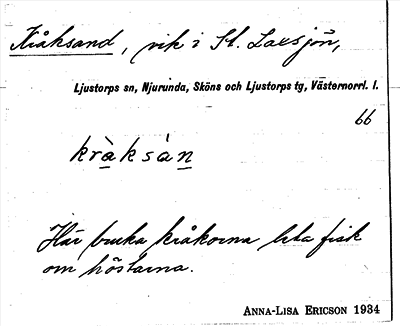 Kråksand, vik i St. Laxsjön,
Ljustorps sn, Njurunda, Sköns och Ljustorps tg, Västernorrl. l.
66
kràksàn
Här bruka kråkorna leta fisk
om höstarna.
ANNA-LISA ERICSON 1934